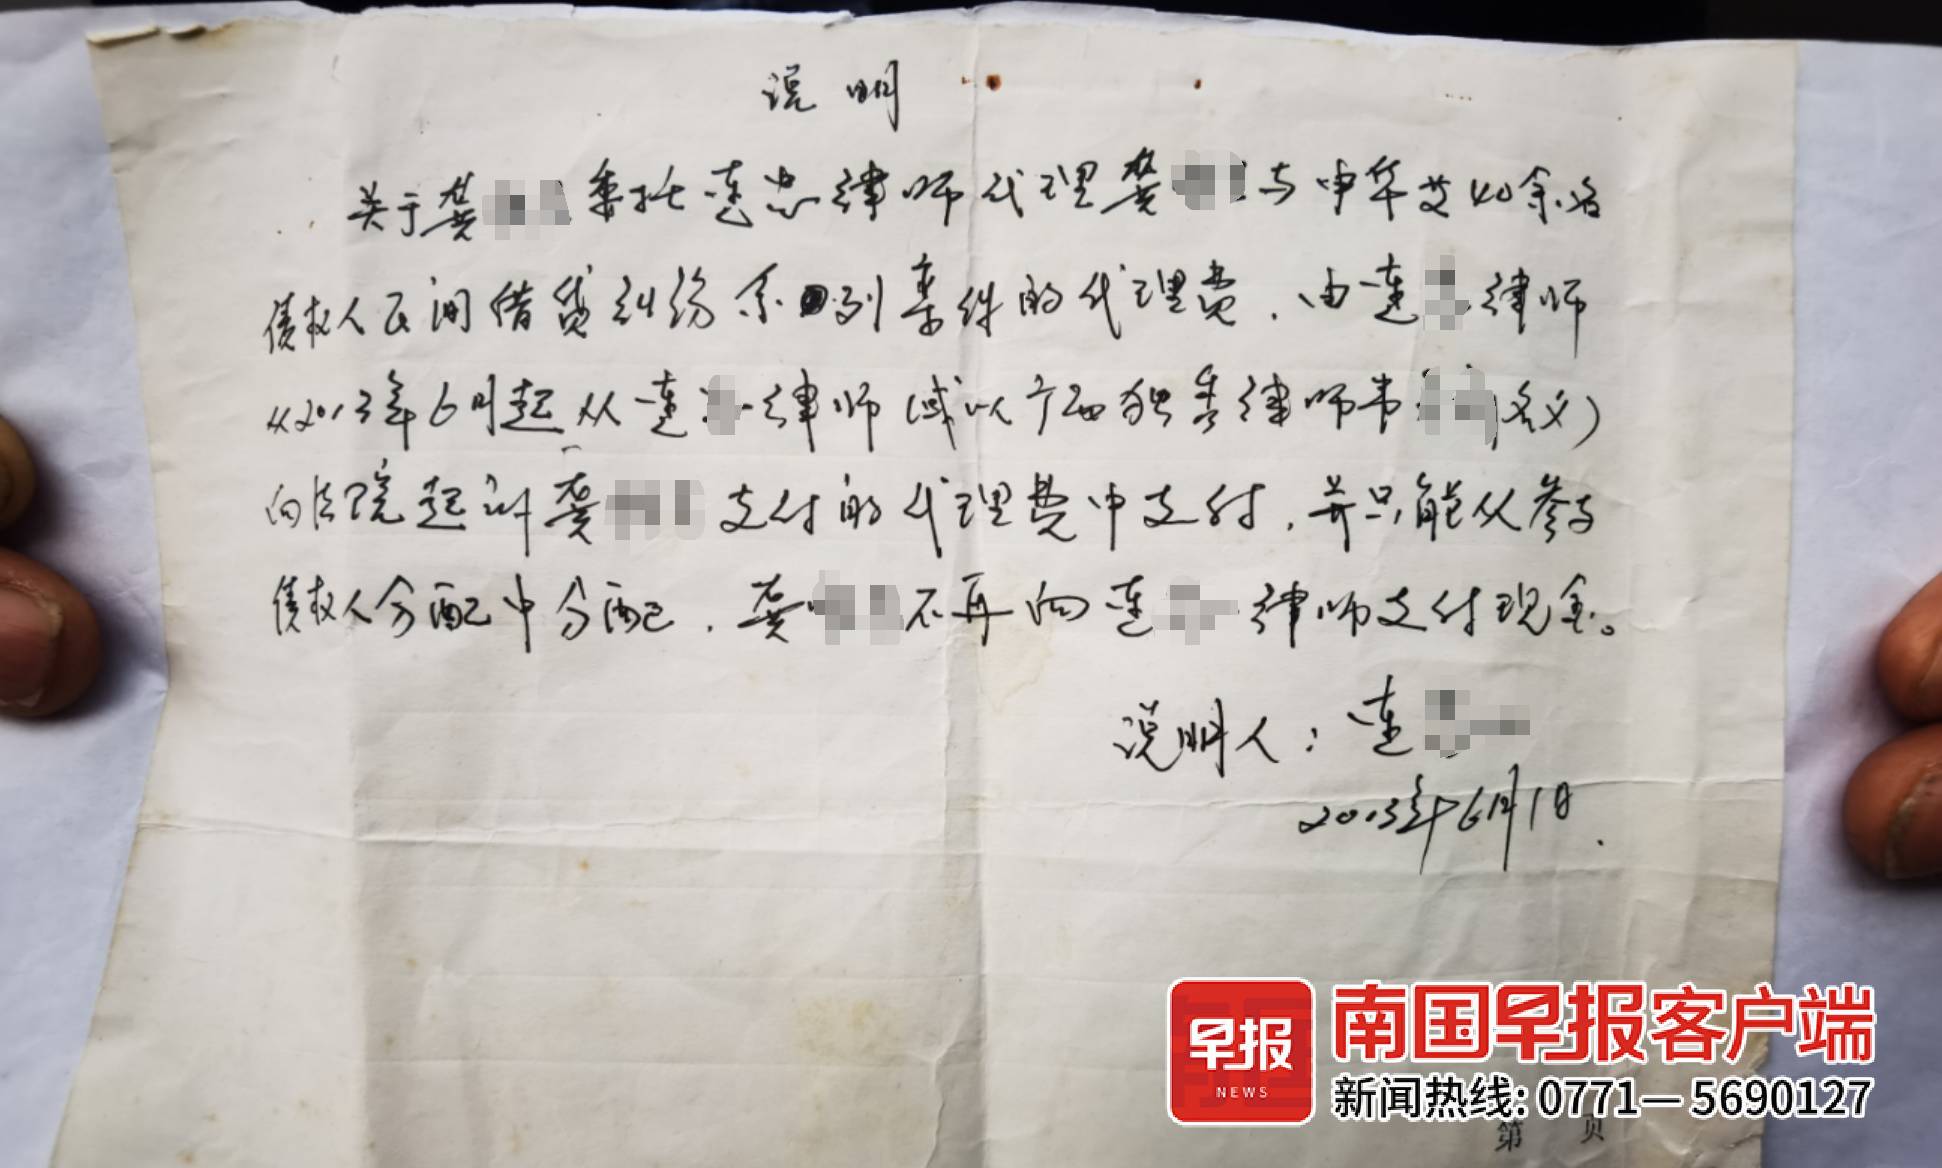 说明
关于龚 委托连忠律师代理龚 与申华艾40余名
债权人民间借贷纠纷系列案件的代理费，由连 律师
从2013年6月起从连 律师（或以广西独秀律师韦 名义）
向法院起诉龚 支付的代理费中支付，并只能从参与
债权人分配中分配，龚 不再向连 律师支付现金。
说明人：连
2013年6月1日
早报 南国早报客户端
NEWS 新闻热线：0771—5690127
第 页